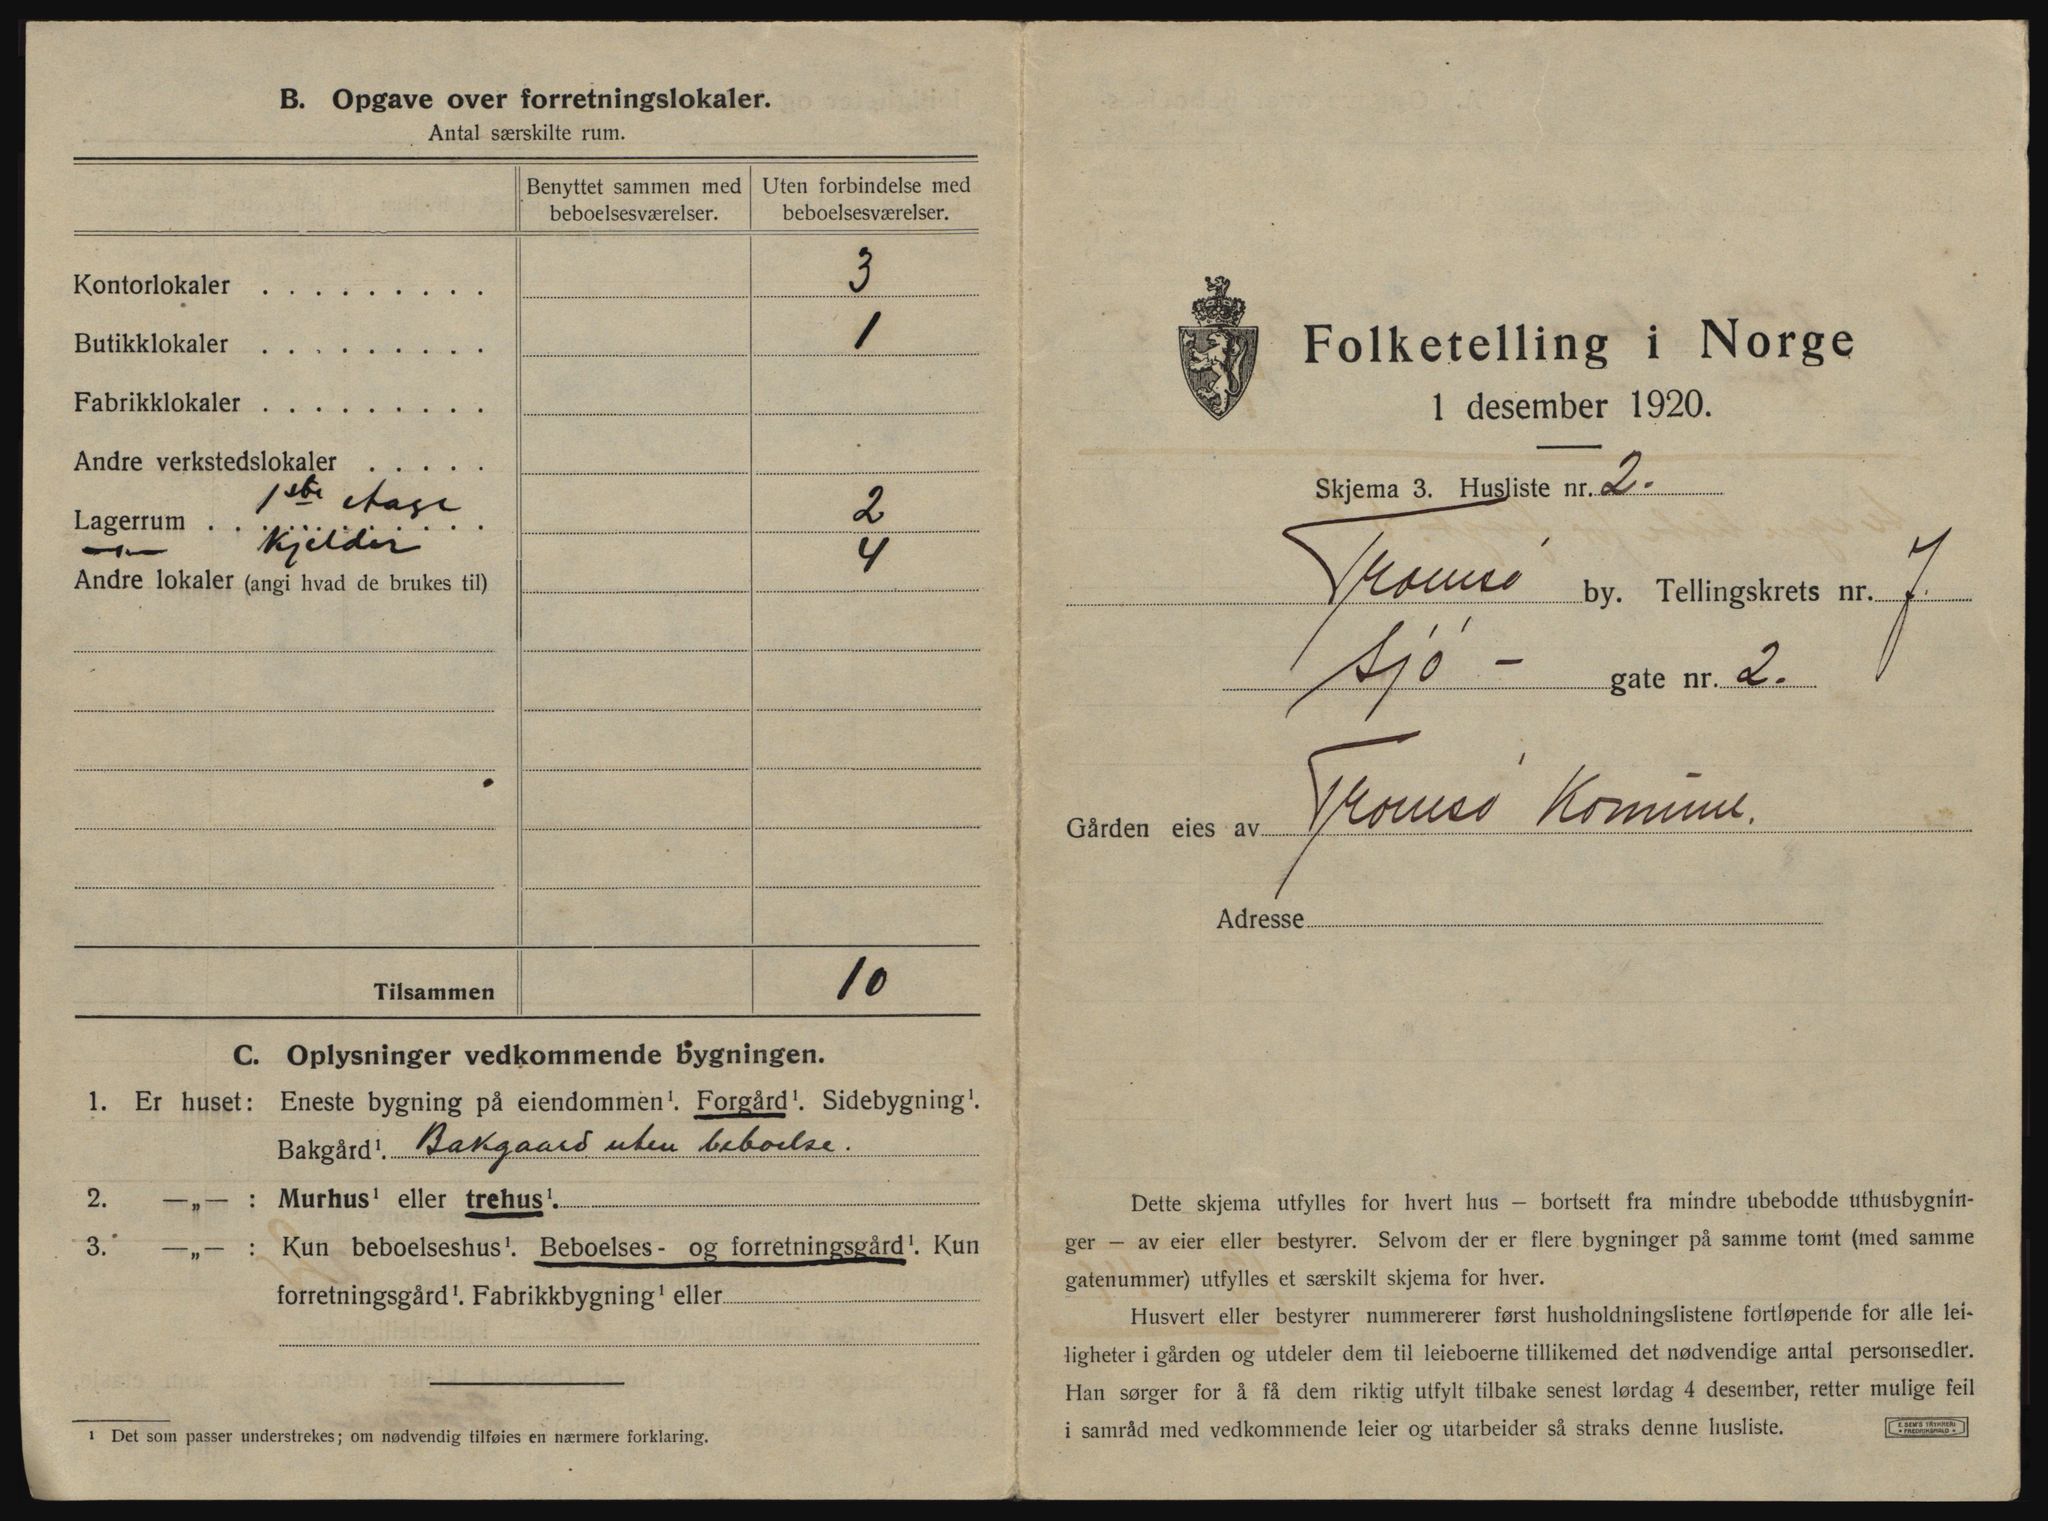 B. Opgave over forretningslokaler.
Antal særskilte rum.
Benyttet sammen med beboelsesværelser.
Uten forbindelse med beboelsesværelser.
Kontorlokaler . . . . . . . . . 3
Butikklokaler . . . . . . . . . 1
Fabrikklokaler . . . . . . . . .
Andre verkstedslokaler . . . . .
Lagerrum . . 1ste etage 2
—„— kjelder 4
Andre lokaler (angi hvad de brukes til)
Tilsammen 10
C. Oplysninger vedkommende bygningen.
1. Er huset: Eneste bygning på eiendommen¹. Forgård¹. Sidebygning¹.
Bakgård¹. Bakgaard uten beboelse.
2. —„— : Murhus¹ eller trehus¹.
3. —„— : Kun beboelseshus¹. Beboelses- og forretningsgård¹. Kun
forretningsgård¹. Fabrikkbygning¹ eller
¹ Det som passer understrekes; om nødvendig tilføies en nærmere forklaring.
Folketelling i Norge
1 desember 1920.
Skjema 3. Husliste nr. 2.
Tromsö by. Tellingskrets nr. 7.
Sjö - gate nr. 2.
Gården eies av Tromsö Komune.
Adresse
Dette skjema utfylles for hvert hus — bortsett fra mindre ubebodde uthusbygnin-
ger — av eier eller bestyrer. Selvom der er flere bygninger på samme tomt (med samme
gatenummer) utfylles et særskilt skjema for hver.
Husvert eller bestyrer nummererer først husholdningslistene fortløpende for alle lei-
ligheter i gården og utdeler dem til leieboerne tillikemed det nødvendige antal personsedler.
Han sørger for å få dem riktig utfylt tilbake senest lørdag 4 desember, retter mulige feil
i samråd med vedkommende leier og utarbeider så straks denne husliste.
E. SEM'S TRYKKERI
FREDRIKSHALD